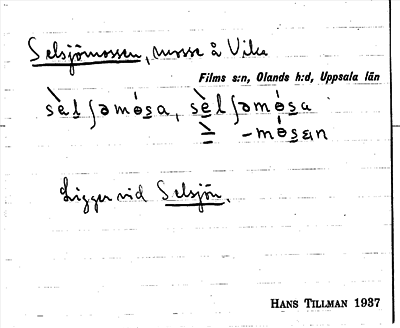 Selsjömossen, mosse å Vika
Films s:n, Olands h:d, Uppsala län
sèlʃəmósa, sèlʃəmósa
-mósɛn
Ligger vid Selsjön.
HANS TILLMAN 1937